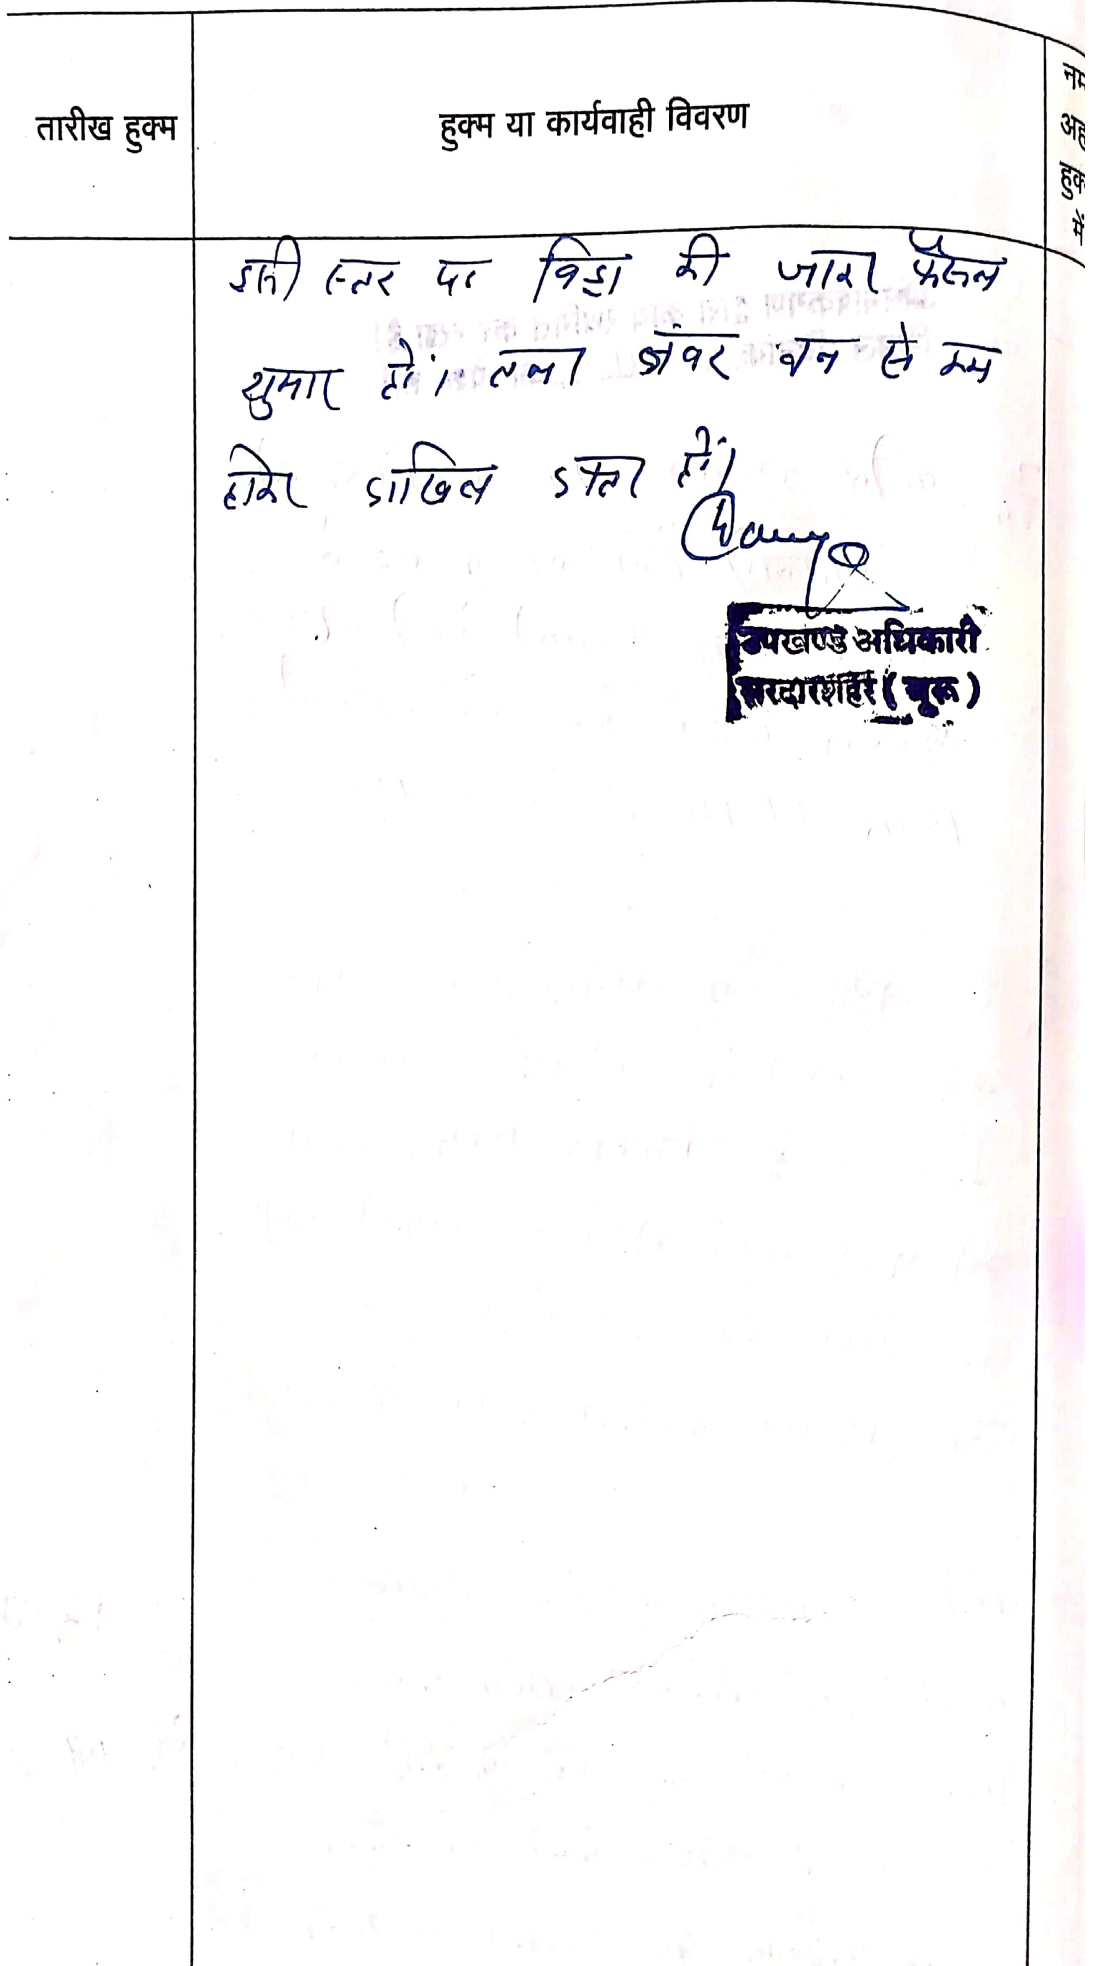 तारीख हुक्म
हुक्म या कार्यवाही विवरण
नम
अह
हुक
में
इसी स्तर पर विड्रा की जाकर फैसल
शुमार हो। तथा नंबर बन से कम
होकर दाखिल दफ्तर हो।
उपखण्ड अधिकारी
सरदारशहर (चूरू)